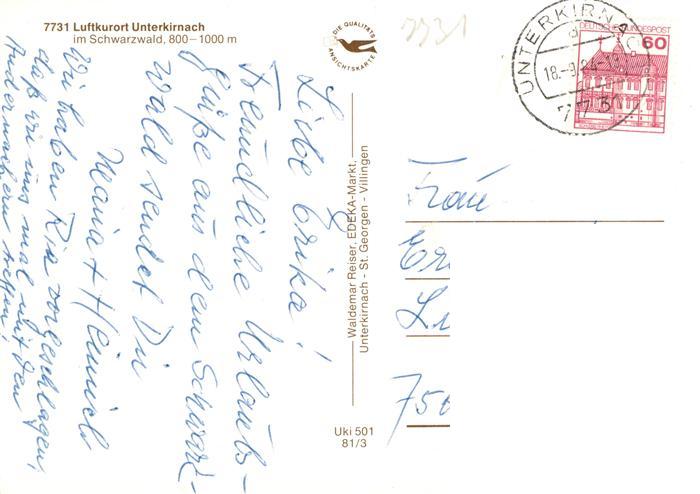 7731 Luftkurort Unterkirnach
im Schwarzwald, 800–1000 m
DIE QUALITÄTS
ANSICHTSKARTE
7731
UNTERKIRNAC
18.-9.
773
DEUTSCHE BUNDESPOST
60
Liebe Erika!
Freundliche Urlaubs-
grüße aus dem Schwarz-
wald sendet Dir
Maria + Heinrich
Wir haben Ria vorgeschlagen,
daß wir uns mal mit den
Andernachern treffen!
Waldemar Reiser, EDEKA-Markt,
Unterkirnach - St. Georgen - Villingen
Uki 501
81/3
Frau
Er
L
750